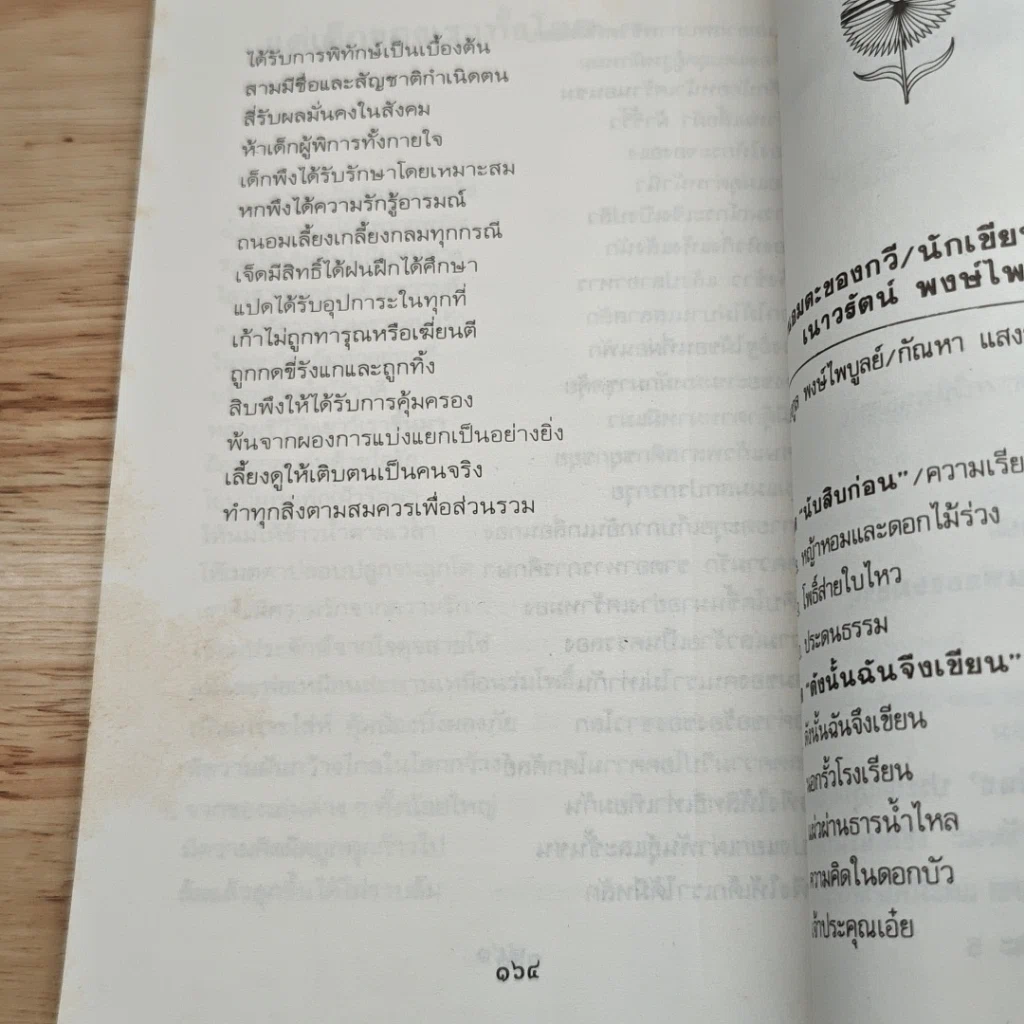 ได้รับการพิทักษ์เป็นเบื้องต้น
สามมีชื่อและสัญชาติกำเนิดตน
สี่รับผลมั่นคงในสังคม
ห้าเด็กผู้พิการทั้งกายใจ
เด็กพึงได้รับรักษาโดยเหมาะสม
หกพึงได้ความรักรู้อารมณ์
ถนอมเลี้ยงเกลี้ยงกลมทุกกรณี
เจ็ดมีสิทธิ์ได้ฝนฝึกได้ศึกษา
แปดได้รับอุปการะในทุกที่
เก้าไม่ถูกทารุณหรือเฆี่ยนตี
ถูกกดขี่รังแกและถูกทิ้ง
สิบพึงให้ได้รับการคุ้มครอง
พ้นจากผองการแบ่งแยกเป็นอย่างยิ่ง
เลี้ยงดูให้เติบตนเป็นคนจริง
ทำทุกสิ่งตามสมควรเพื่อส่วนรวม
๑๖๔
ของกวี/นักเขียน
เนาวรัตน์ พงษ์ไพ
พงษ์ไพบูลย์/กัณหา แสง
"นับสิบก่อน"/ความเรีย
หญ้าหอมและดอกไม้ร่วง
โพธิ์สายใบไหว
ประดนธรรม
"ดังนั้นฉันจึงเขียน"
ดังนั้นฉันจึงเขียน
นอกรั้วโรงเรียน
แผ่วผ่านธารน้ำไหล
ความคิดในดอกบัว
เจ้าประคุณเอ๋ย